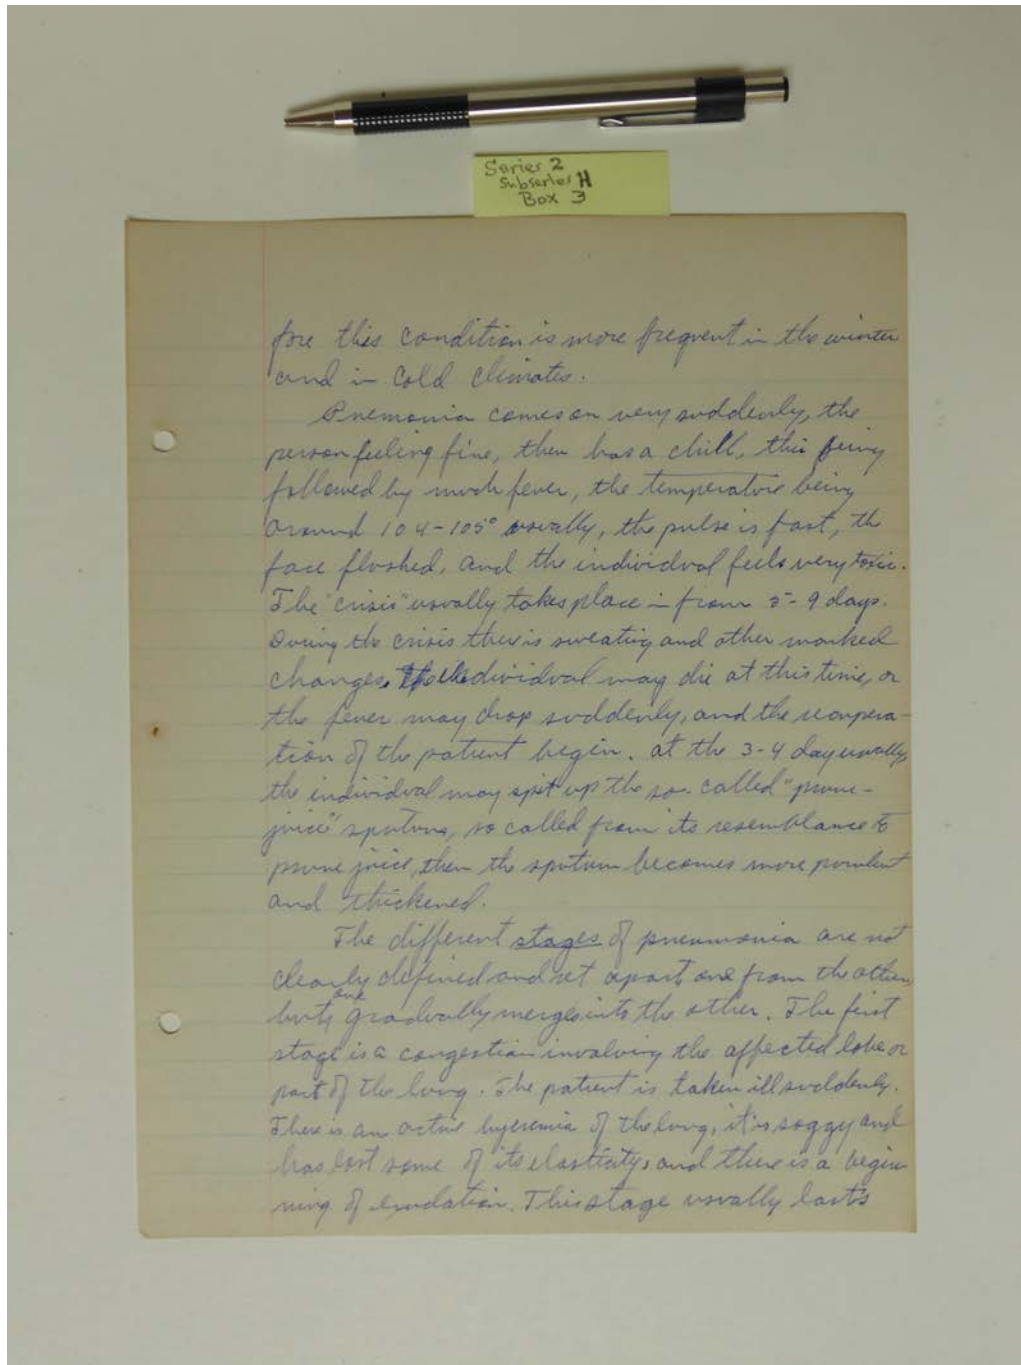 Series 2
Subseries H
Box 3
fore this condition is more frequent in the winter
and in cold climates.
Pnemonia comes on very suddenly, the
person feeling fine, then has a chill, this being
followed by much fever, the temperature being
around 104-105° usually, the pulse is fast, the
face flushed, and the individual feels very toxic.
The "crisis" usually takes place in from 5-9 days.
During the crisis there is sweating and other marked
changes. The individual may die at this time, or
the fever may drop suddenly, and the recupera-
tion of the patient begin. At the 3-4 day usually,
the individual may spit up the so-called "prune-
juice" sputum, so called from its resemblance to
prune juice, then the sputum becomes more purulent
and thickened.
The different stages of pneumonia are not
clearly defined and set apart one from the other,
but one gradually merges into the other. The first
stage is a congestion involving the affected lobe or
part of the lung. The patient is taken ill suddenly.
There is an active hyeremia of the lung, it is soggy and
has lost some of its elasticity, and there is a begin-
ning of exudation. This stage usually lasts